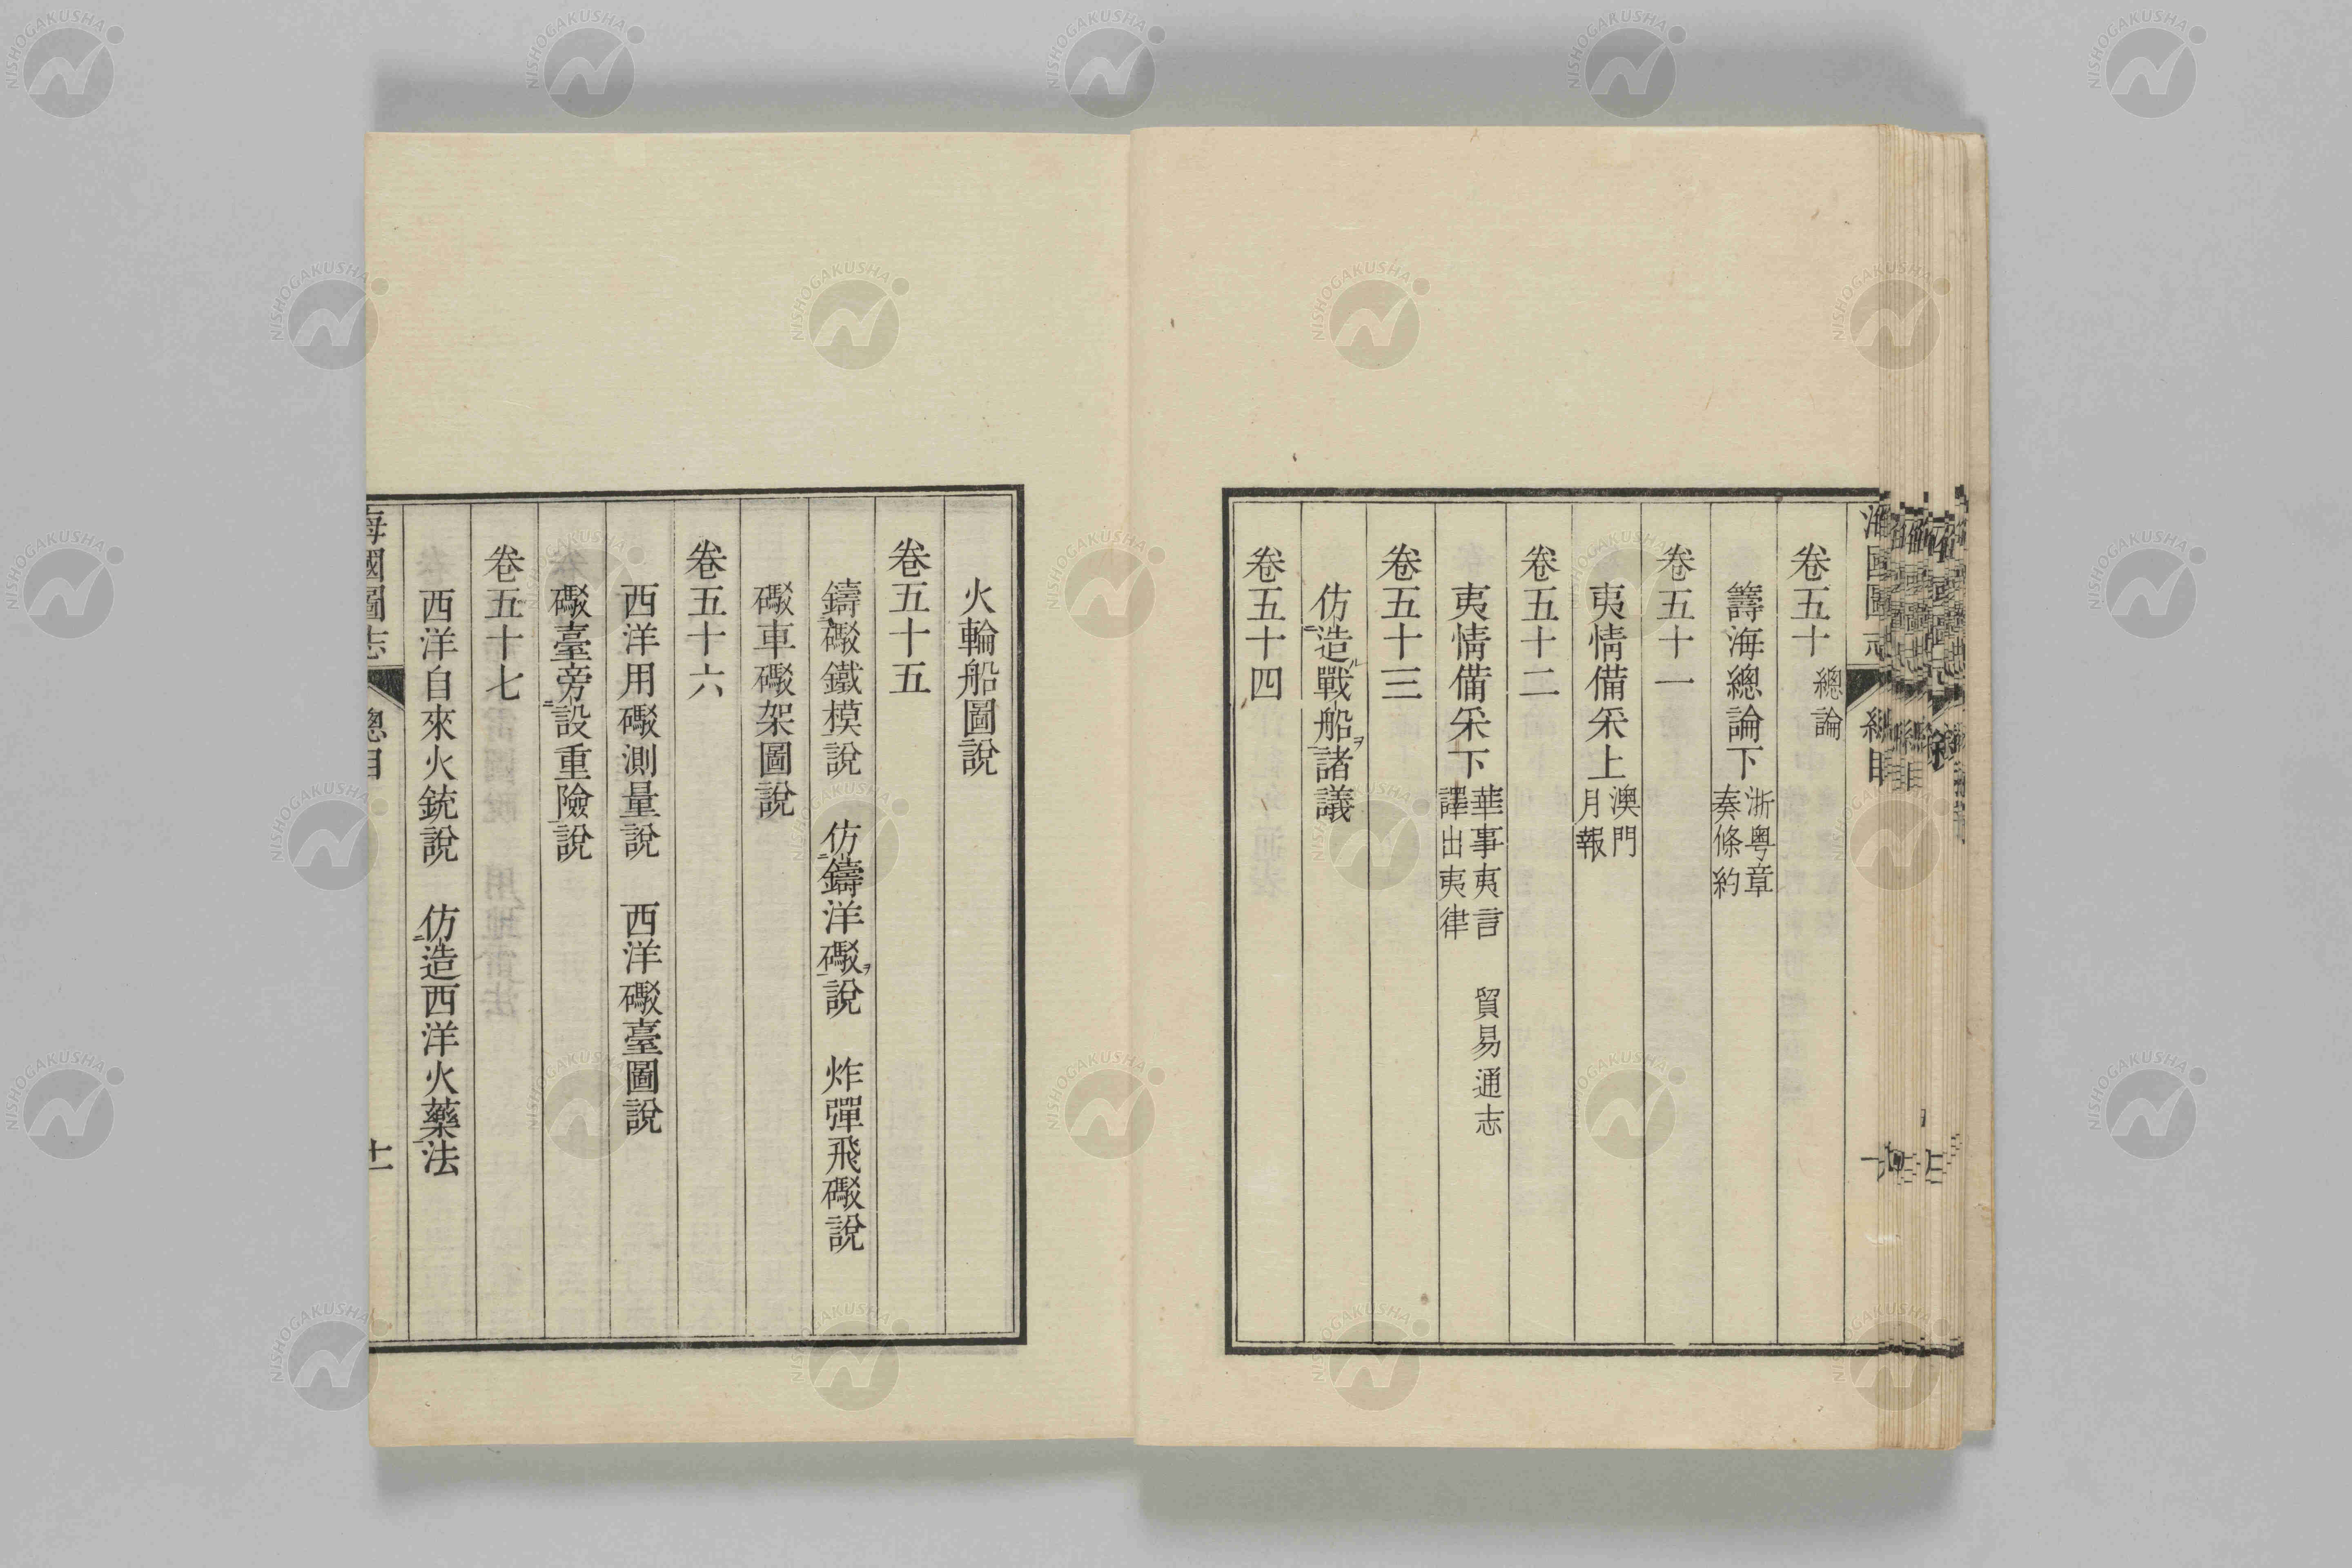 海國圖志 總目
卷五十 總論
籌海總論下 浙粤章奏條約
卷五十一
夷情備采上 澳門月報
卷五十二
夷情備采下 華事夷言 貿易通志 譯出夷律
卷五十三
仿造戰船諸議
卷五十四
火輪船圖說
卷五十五
鑄礮鐵模說 仿鑄洋礮說 炸彈飛礮說
礮車礮架圖說
卷五十六
西洋用礮測量說 西洋礮臺圖說
礮臺旁設重險說
卷五十七
西洋自來火銃說 仿造西洋火藥法
海國圖志 總目 十一
NISHOGAKUSHA